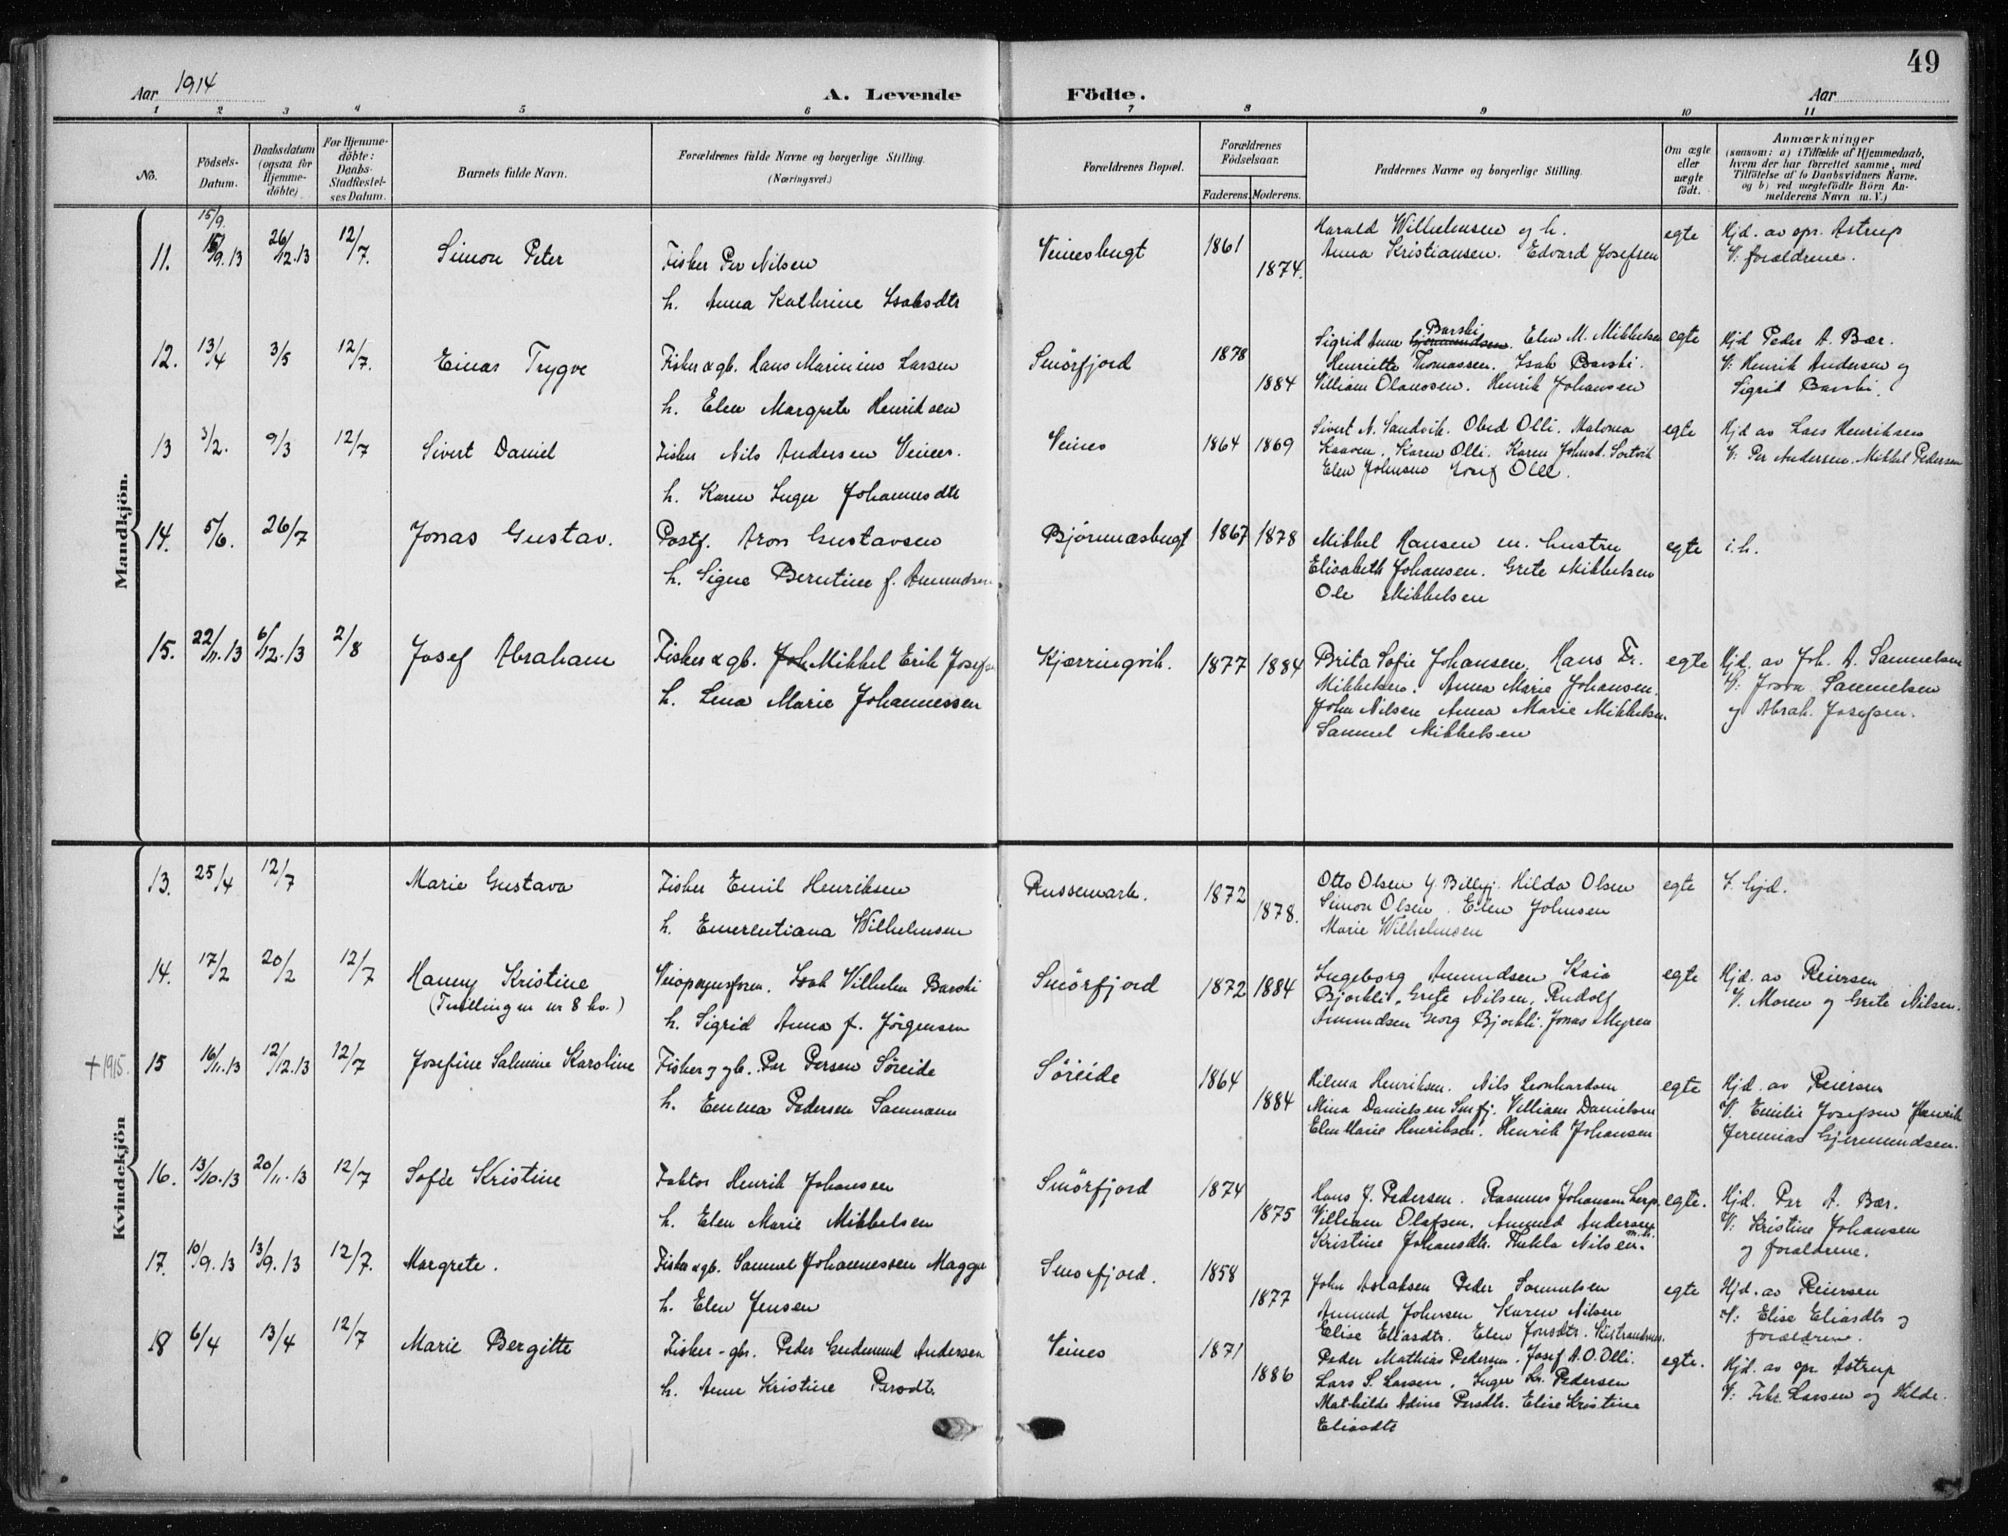 49
Aar 1914
A. Levende Födte.
Aar
1 2 3 4 5 6 7 8 9 10 11
No.
Födsels-Datum.
Daabsdatum (ogsaa for Hjemme-döbte)
For Hjemme-döbte: Daabs-Stadfestel-ses Datum.
Barnets fulde Navn.
Forældrenes fulde Navne og borgerlige Stilling. (Næringsvei.)
Forældrenes Bopæl.
Forældrenes Födselsaar.
Faderens. Moderens.
Faddernes Navne og borgerlige Stilling.
Om ægte eller uægte født.
Anmærkninger
(saasom: a) i Tilfælde af Hjemmedaab, hvem der har forrettet samme, med Tilföielse af to Daabsvidners Navne. og b) ved uægtefödte Börn An-melderens Navn m. V.)
Mandkjön.
15/9.
11. 15/9.13 26/12.13 12/7. Simon Peter Fisker Per Nilsen Veinesbugt 1861 Harald Wilhelmsen og h. egte Hjd. av opr. Astrup
h. Anna Kathrine Isaksdtr 1874. Anna Kristiansen. Edvard Josefsen V: forældrene.
12. 13/4 3/5 12/7. Einar Trygve Fisker & gb. Hans Marinius Larsen Smörfjord 1878 Sigrid Anne Barski. Elen M. Mikkelsen egte Hjd Peder A. Bær.
Henriette Thomassen. Isak Barski. V: Henrik Andersen og
h. Elen Margrete Henriksen 1884 William Olaussen. Henrik Johansen Sigrid Barski.
13 3/2. 9/3 12/7 Sivert Daniel Fisker Nils Andersen Veines. Veines 1864 1869 Sivert N. Sandvik. Obed Olli. egte Hjd av Lars Henriksen
Kaaven. Karen Olli. Karen V: Per Andersen. Mikkel Pedersen
h. Karen Inger Johannesdtr Elen Johnsen Josef Olli.
14. 5/6. 26/7 Jonas Gustav. Postf. Aron Gustavsen Bjørnnæsbugt 1867 1878 Mikkel Hansen m. hustru egte i.h.
h. Signe Berntine f. Amundsen Elisabeth Johansen. Grete Mikkelsen
Ole Mikkelsen
15. 22/11.13 6/12.13 2/8 Josef Abraham Fisker & gb. Joh Mikkel Erik Josefs Kjærringvik. 1877 1884 Brita Sofie Johansen, Hans Fr. egte Hjd. av Joh. A. Samuelsen
h. Lena Marie Johannessen Mikkelsen. Anna Marie Johansen. V: Josva Samuelsen
John Nilsen Anna Marie Mikkelsen. og Abrah. Josefsen.
Samuel Mikkelsen
Kvindekjön
13. 25/4 12/7 Marie Gustava Fisker Emil Henriksen Russemark. 1872 Otto Olsen Hilda Olsen egte
h. Emerentiana Wilhelmsen 1878. Simon Olsen. Elen Johnsen
Marie Wilhelmsen
14. 17/2 20/2 12/7 Hanny Kristine Isak Vilhelm Barski Smörfjord 1872 1884 Ingeborg Amundsen Kaia egte Hjd. av Reiersen
(Tvillingen nr 8 kv.) Bjørkli, Grete Nilsen, Rudolf V. Moren og Grete Nilsen.
h. Sigrid Anna f. Jörgensen Amundsen Georg Bjorkli. Jonas Myren
+1915. 15 16/11.13 12/12.13 12/7 Josefine Salmine Karoline Fisker & gb. Per Persen Søreide Søreide 1864 Hilma Henriksen. Nils Leonhardsen egte Hjd. av Reiersen
h. Emma Pedersen Sammann 1884 Mina Danielsen Smfj. Villiam Danielsen V. Emilie Josefsen Henrik
Elen Marie Henriksen. Henrik Johansen Jeremias Gjermundsen.
16. 13/10.13 20/11.13 12/7 Sofie Kristine Faktor Henrik Johansen Smörfjord 1874 Hans J. Pedersen. Rasmus Johansen egte. Hjd. Per A. Bær.
h. Elen Marie Mikkelsen 1875 Villiam Olafsen. Amund Andersen V: Kristine Johansen
Kristine Johansdtr. Thekla Nilsen. og forældrene.
17. 10/9.13 13/9.13 12/7. Margrete. Fisker & gb. Samuel Johannessen Magga Smörfjord. 1858 John Aslaksen Peder Samuelsen egte Hjd. av Reiersen
h. Elen Jensen 1877 Amund Johnsen Karen Nilsen V: Elise Eliasdtr og
Elise Eliasdtr. Elen Jonsdtr. forældrene.
18 6/4 13/4 12/7 Marie Bergitte Fisker-gbr. Peder Gudmund Andersen Veines 1871 Peder Mathias Pedersen. Josef A.O. Olli. egte. Hjd. av opr. Astrup
h. Anne Kristine Persdtr. 1886 Lars S. Larsen, Inger Pedersen V: Fiskr. Larsen og Hilde.
Mathilde Adine Persdtr. Elise Kristine
Eliasdtr